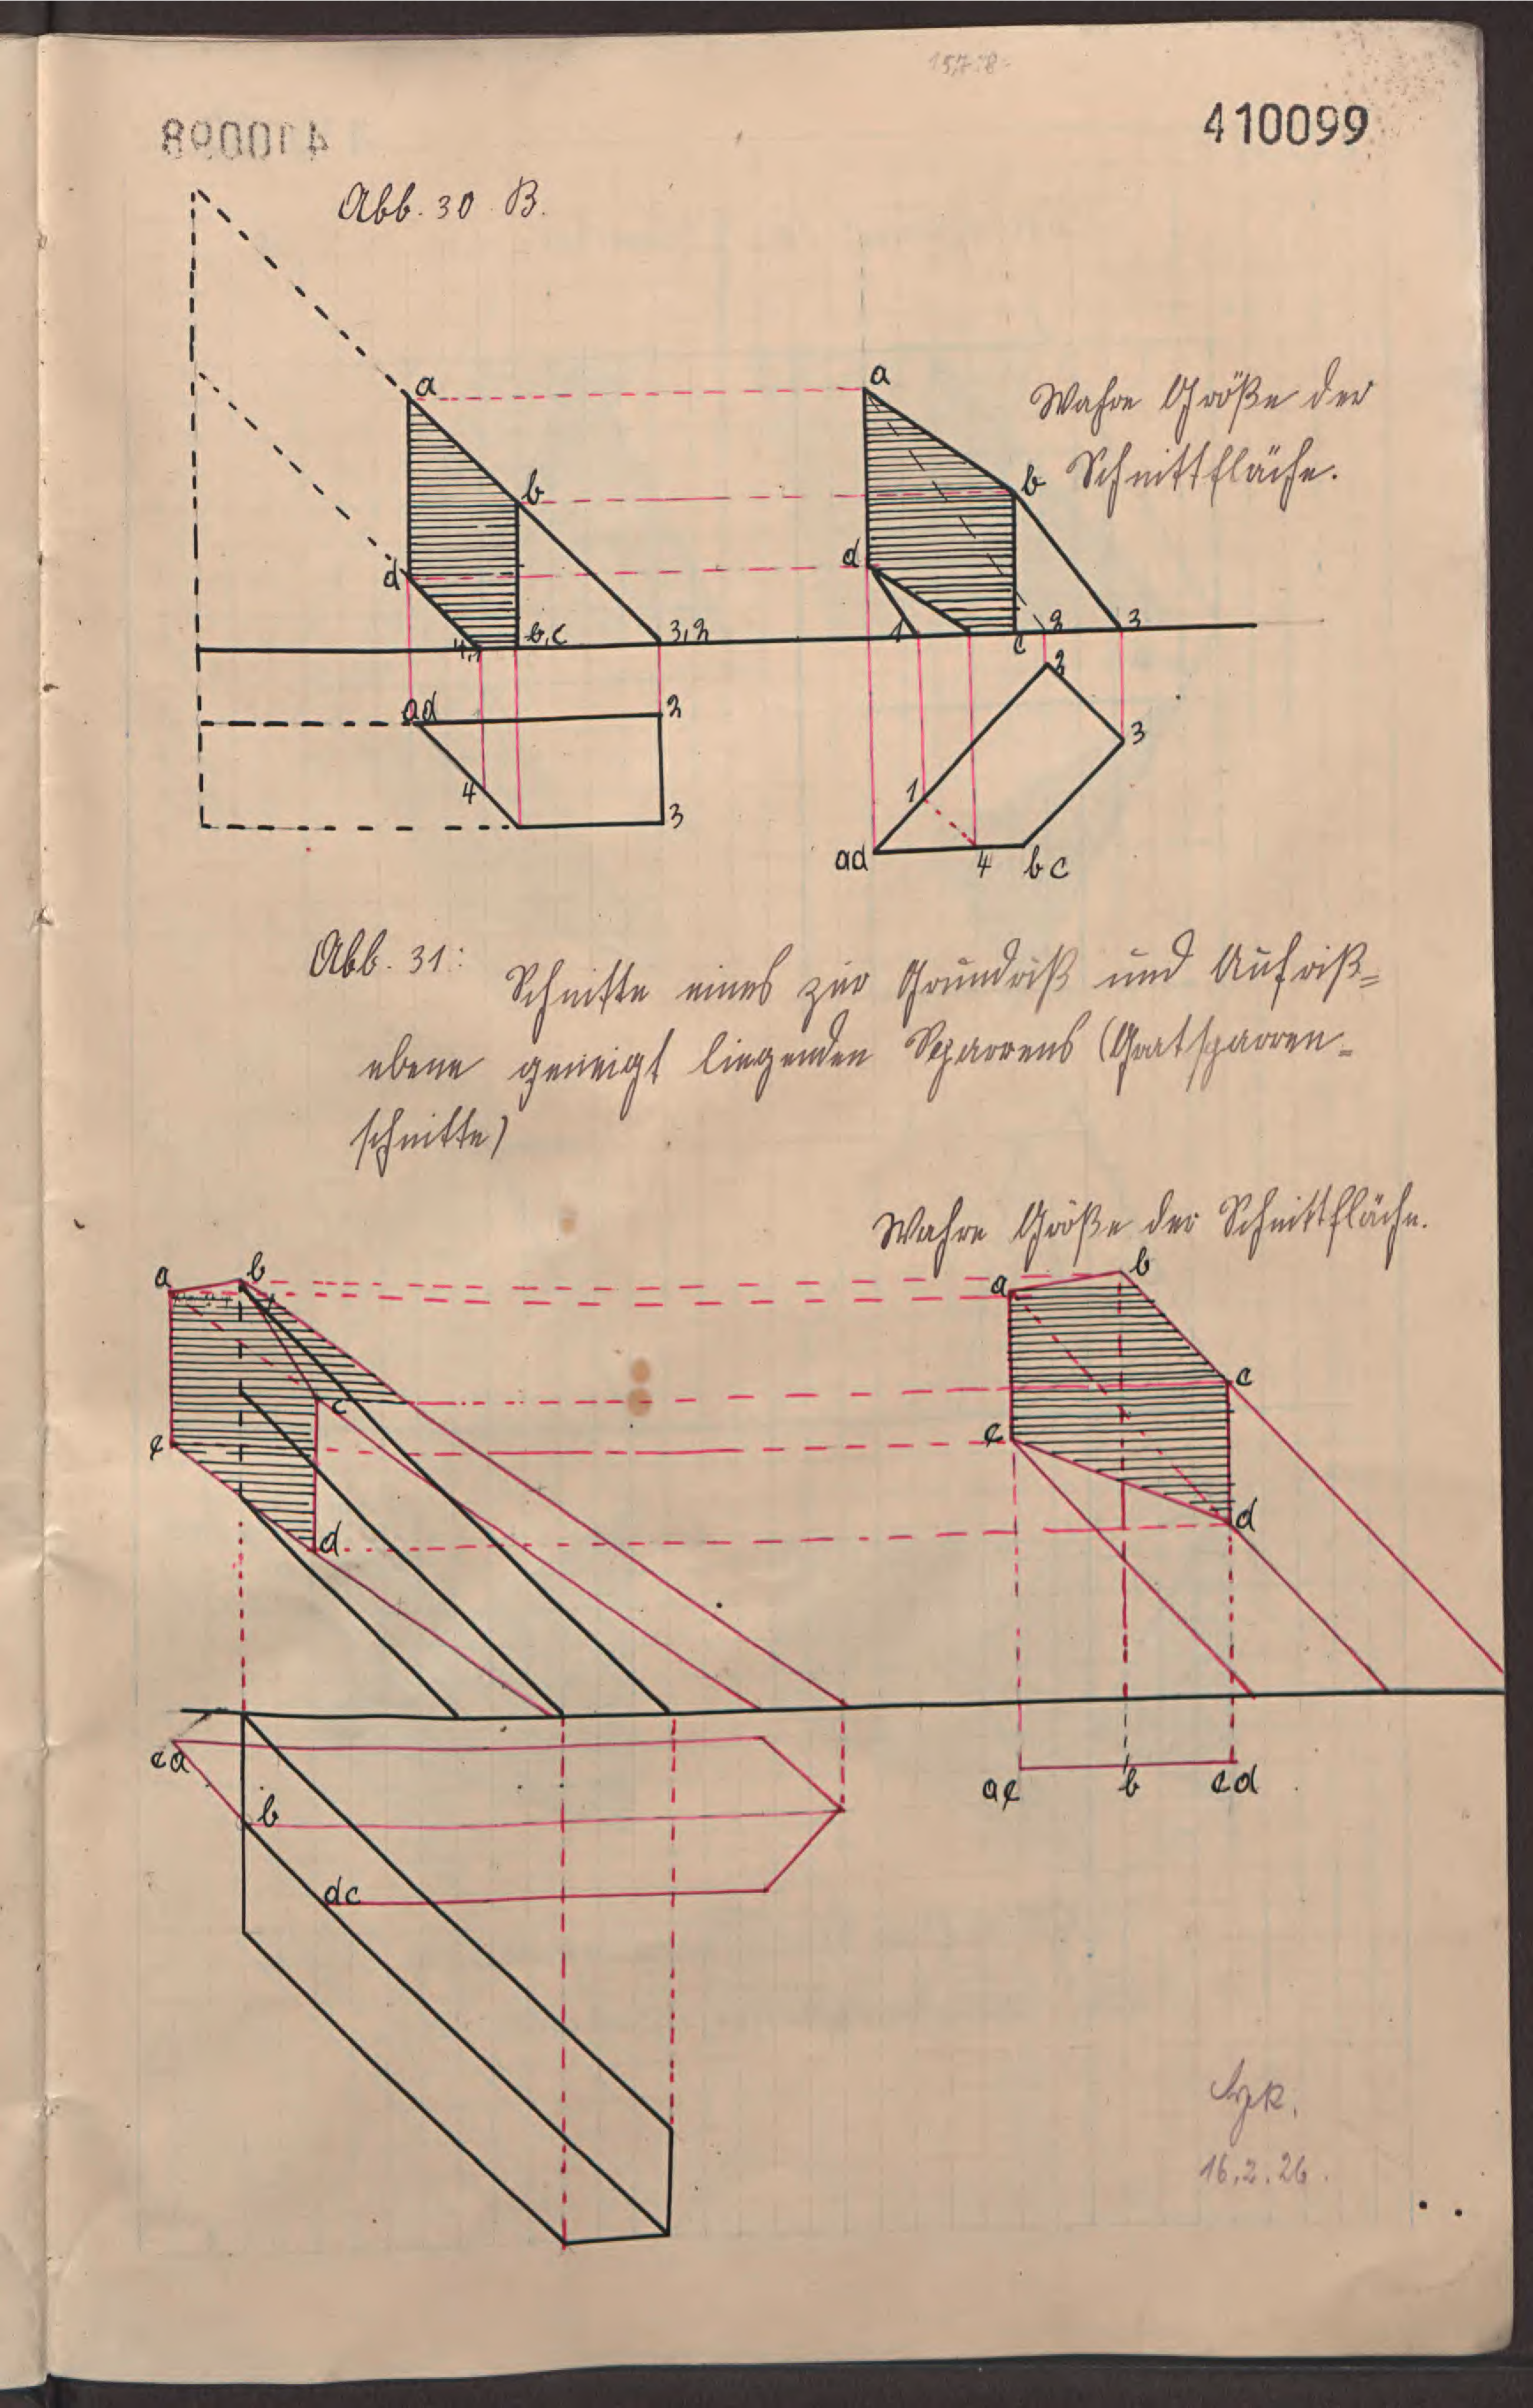 410099
Abb. 30 B.
a
a
Wahre Größe der
Schnittfläche.
b
b
d
d
4,1
b,c
3,2
1
c
2
3
ad
2
2
3
4
3
1
ad
4
bc
Abb. 31:
Schnitte eines zur Grundriß und Aufriß-
ebene geneigt liegenden Sparrens (Gratsparren-
schnitte)
Wahre Größe der Schnittfläche.
a
b
a
b
c
c
e
e
d
d
ea
ae
b
cd
b
dc
16.2.26.